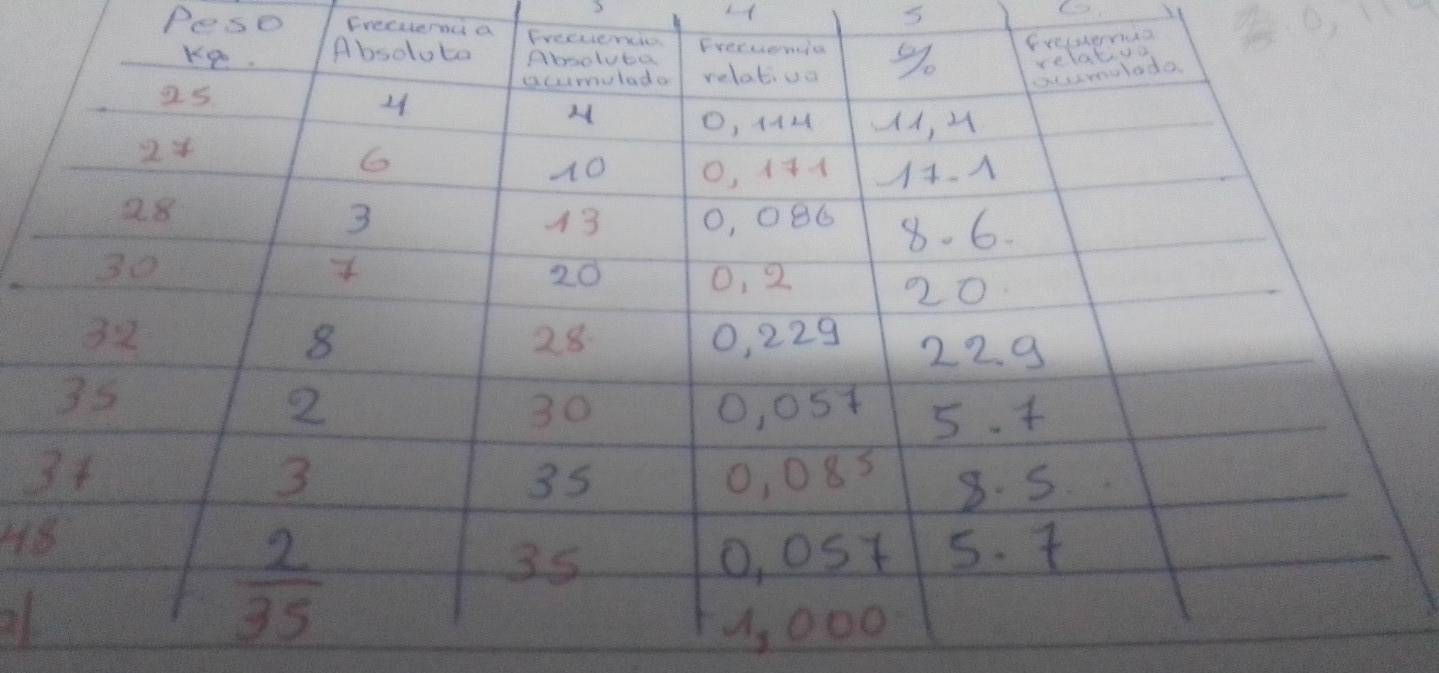 3 4 5 6
Peso Kg. Frecuencia Absoluta Frecuencia Absoluta acumulada Frecuencia relativa % Frecuencia relativa acumulada
25 4 4 0,114 11,4
27 6 10 0,171 17.1
28 3 13 0,086 8.6.
30 7 20 0,2 20.
32 8 28 0,229 22.9
35 2 30 0,057 5.7
37 3 35 0,085 8.5.
48 2 35 0,057 5.7
35 1,000